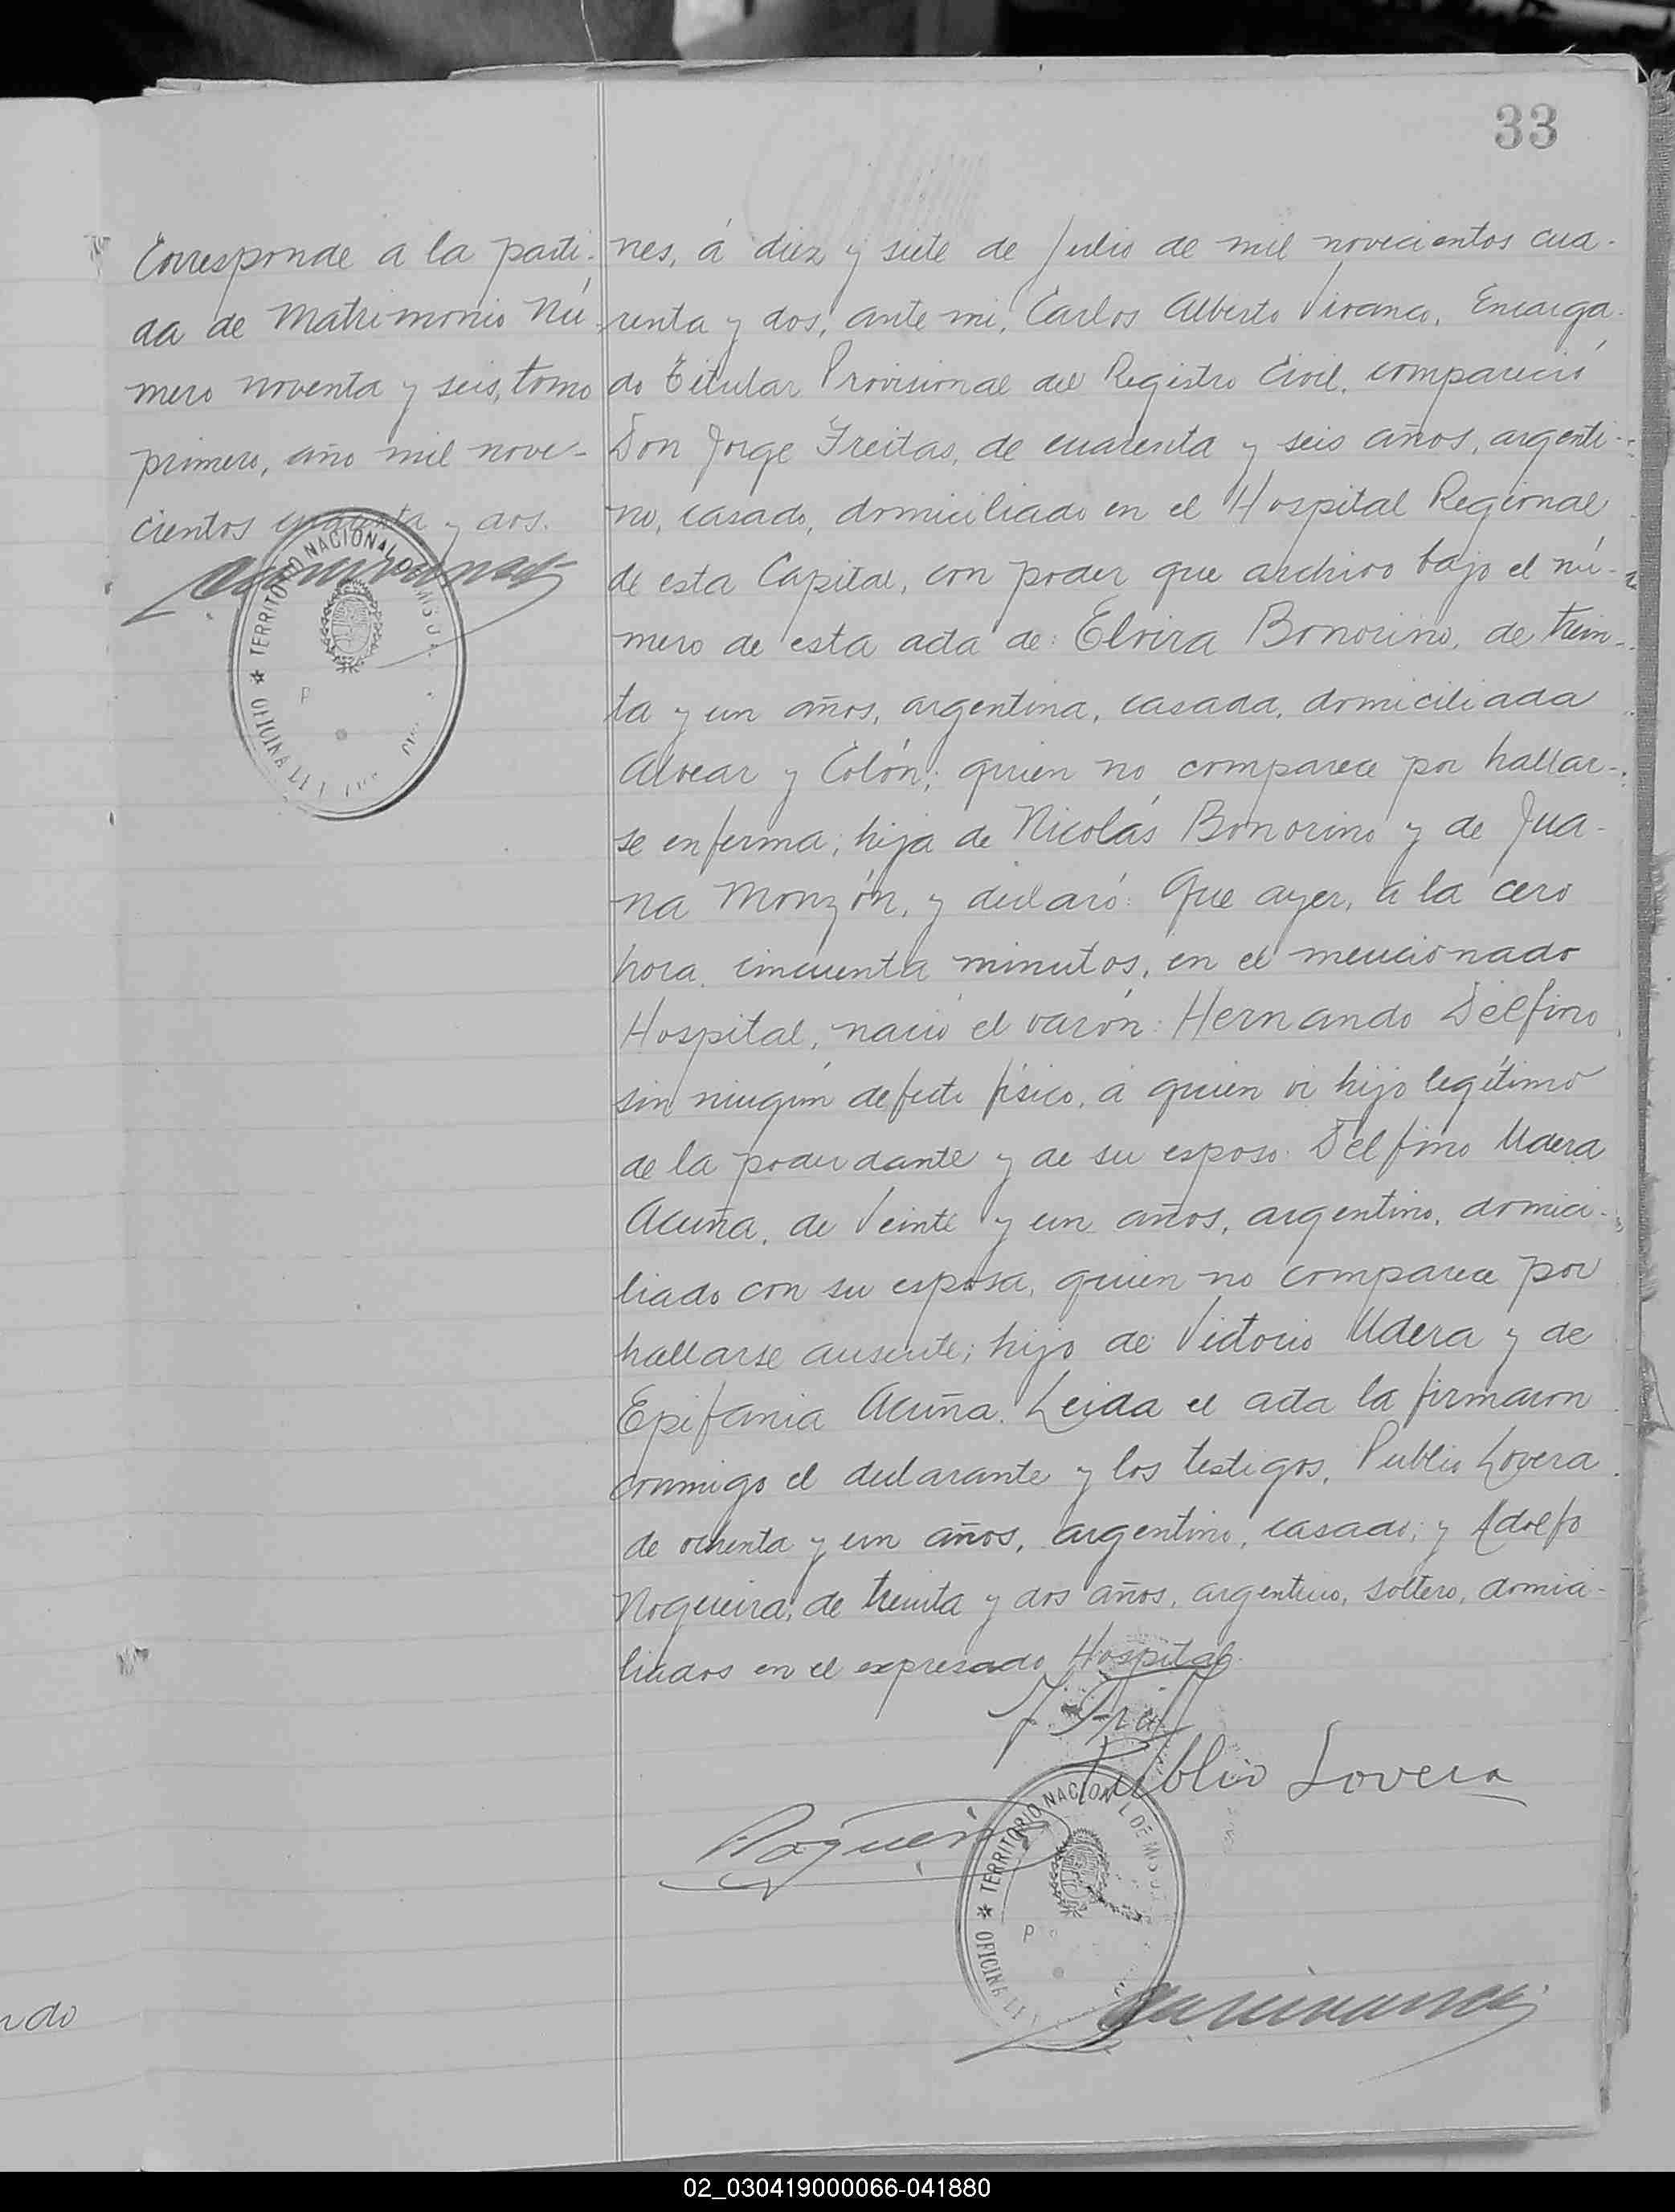 33
Corresponde a la parti-
da de Matrimonio Nú-
mero noventa y seis, tomo
primero, año mil nove-
cientos cuarenta y dos.
TERRITORIO NACIONAL DE MISIONES
OFICINA
nes, á diez y siete de Julio de mil novecientos cua-
renta y dos, ante mi, Carlos Alberto Vivanco, Encarga-
do Titular Provisional del Registro Civil, compareció
Don Jorge Freitas, de cuarenta y seis años, argenti-
no, casado, domiciliado en el Hospital Regional
de esta Capital, con poder que archivo bajo el nú-
mero de esta acta de: Elvira Bonorino, de trein-
ta y un años, argentina, casada, domiciliada
Alvear y Colón; quien no comparece por hallar-
se enferma; hija de Nicolás Bonorino y de Jua-
na Monzón, y declaró: Que ayer, a la cero
hora cincuenta minutos, en el mencionado
Hospital, nació el varón: Hernando Delfino
sin ningún defecto físico, a quien vi hijo legítimo
de la poderdante y de su esposo Delfino Udera
Acuña, de Veinte y un años, argentino, domici-
liado con su esposa, quien no comparece por
hallarse ausente; hijo de Victorio Udera y de
Epifania Acuña. Leida el acta la firmaron
conmigo el declarante y los testigos, Publio Lovera
de ochenta y un años, argentino, casado; y Adolfo
Nogueira, de treinta y dos años, argentino, soltero, domici-
liados en el expresado Hospital.
Publio Lovera
TERRITORIO NACIONAL DE MISIONES
OFICINA
ndo
02_030419000066-041880